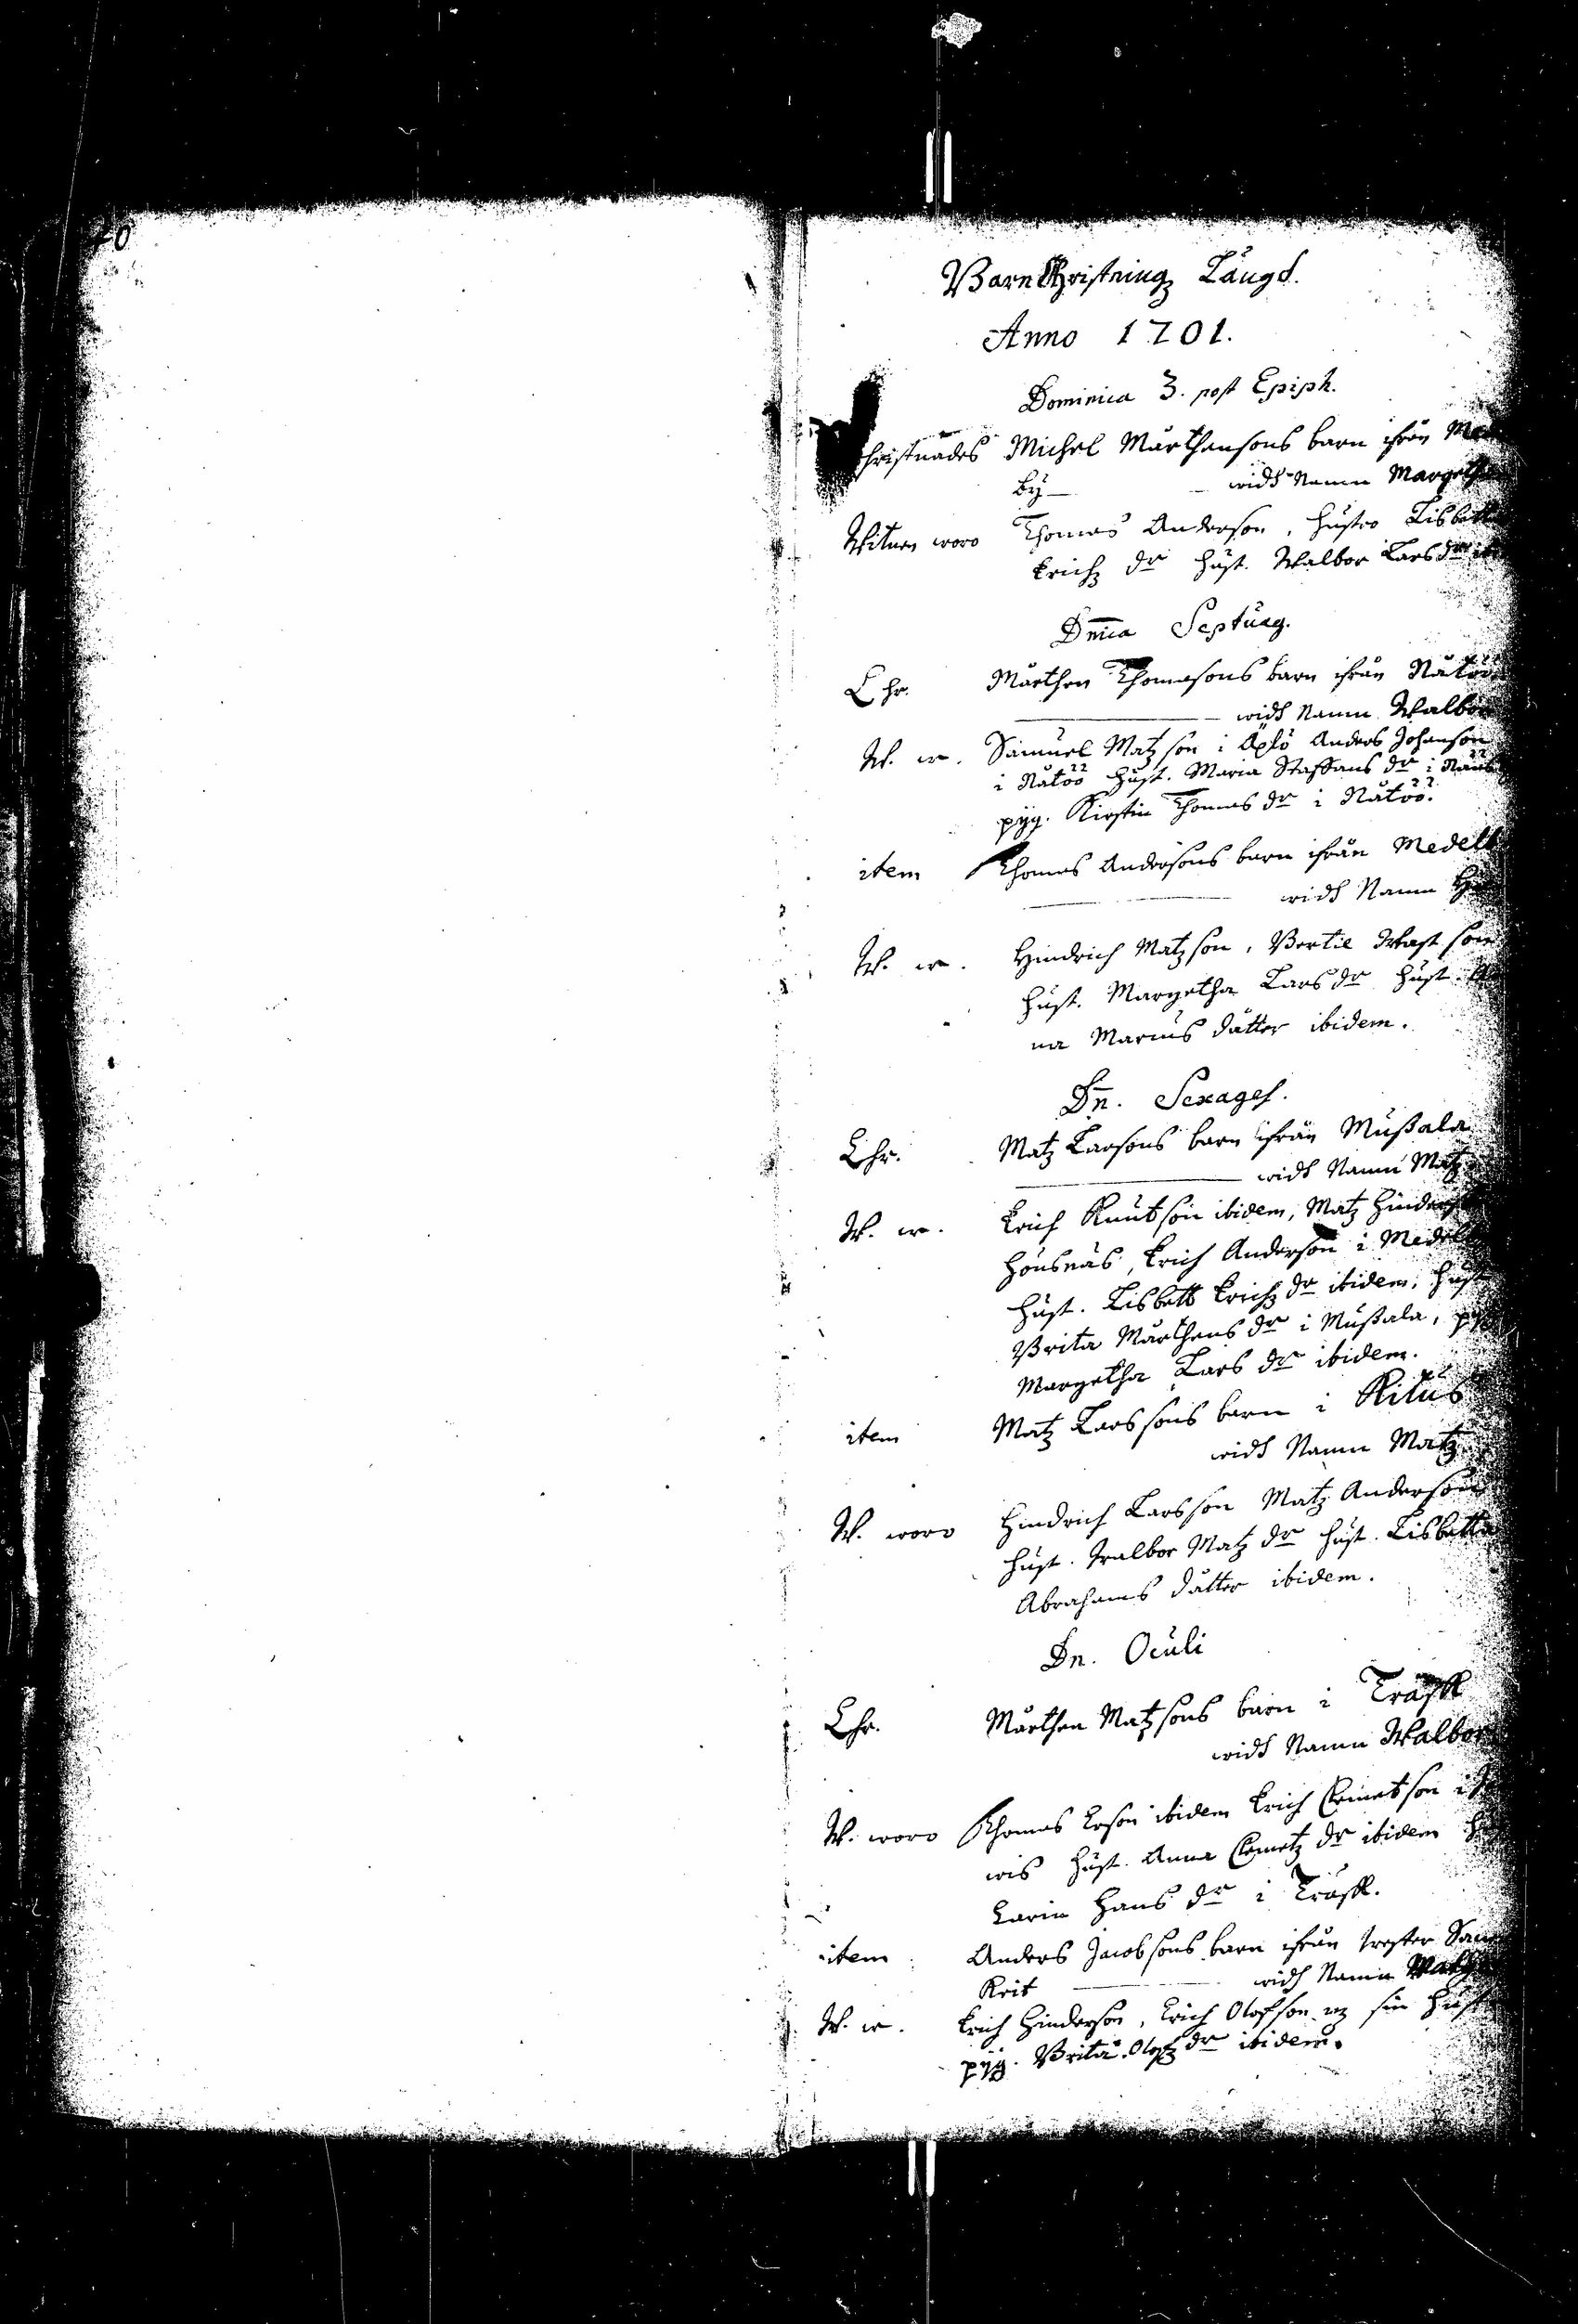 BarnChristningz Längd.
Anno 1701.
Dominica 3. post Epiph.
Christnades Michel Mårthensons barn ifrån
by widh Namn Margetha
Witnen woro Thomas Anderson, hustro Lisbetta
Erichz dr hust. Walbor Larsdr
Dnica Septuag.
Chr. Mårthen Thomasons barn ifrån Nåtöö
widh Namn Walbor
W. w. Samuel Matzson i Äplö Anders Johanson
i Nåtöö hust. Maria Staffans dr i
pyg. Kirstin Thomas dr i Nåtöö.
item Thomas Andersons barn ifrån Medelb
widh Namn
W. w. Hindrich Matzson, Bertil Mastson
hust. Margetha Larsdr hust. An
na Marcus dåtter ibidem.
Dn. Sexages.
Chr. Matz Larsons barn ifrån Mussala
widh Namn Matz
W. w. Erich Knutson ibidem, Matz Hinders
Housnäs, Erich Anderson i Medelb
hust. Lisbett Erichz dr ibidem, hust
Brita Mårthens dr i Mussala, pyg
Margetha Lars dr ibidem.
item Matz Larssons barn i Kitus
widh Namn Matz
W. woro Hindrich Larsson Matz Anderson
hust. Walbor Matz dr hust. Lisbetta
Abrahams dåtter ibidem.
Dn. Oculi
Chr. Mårthen Matzsons barn i Träsk
widh Namn Walbor
W. woro Thomas ibidem Erich Clemetson i
wis hust. Anna Clemetz dr ibidem
Carin Hans dr i Träsk.
item Anders Jacobsons barn ifrån
widh Namn
W. w. Erich Hinderson, Erich Olofson mz sin hust
pyg. Brita Olofz dr ibidem.